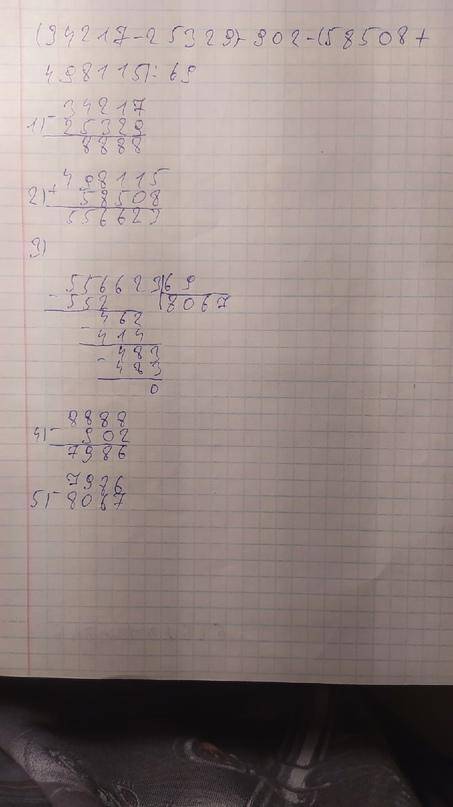 (34217-25329)-902-(58508+
498115):69
34217
1) - 25329
8888
498115
2) + 58508
556623
3)
556623|69
- 552 |8067
- 462
414
- 483
483
0
8888
4) - 902
7986
7986
5) - 8067